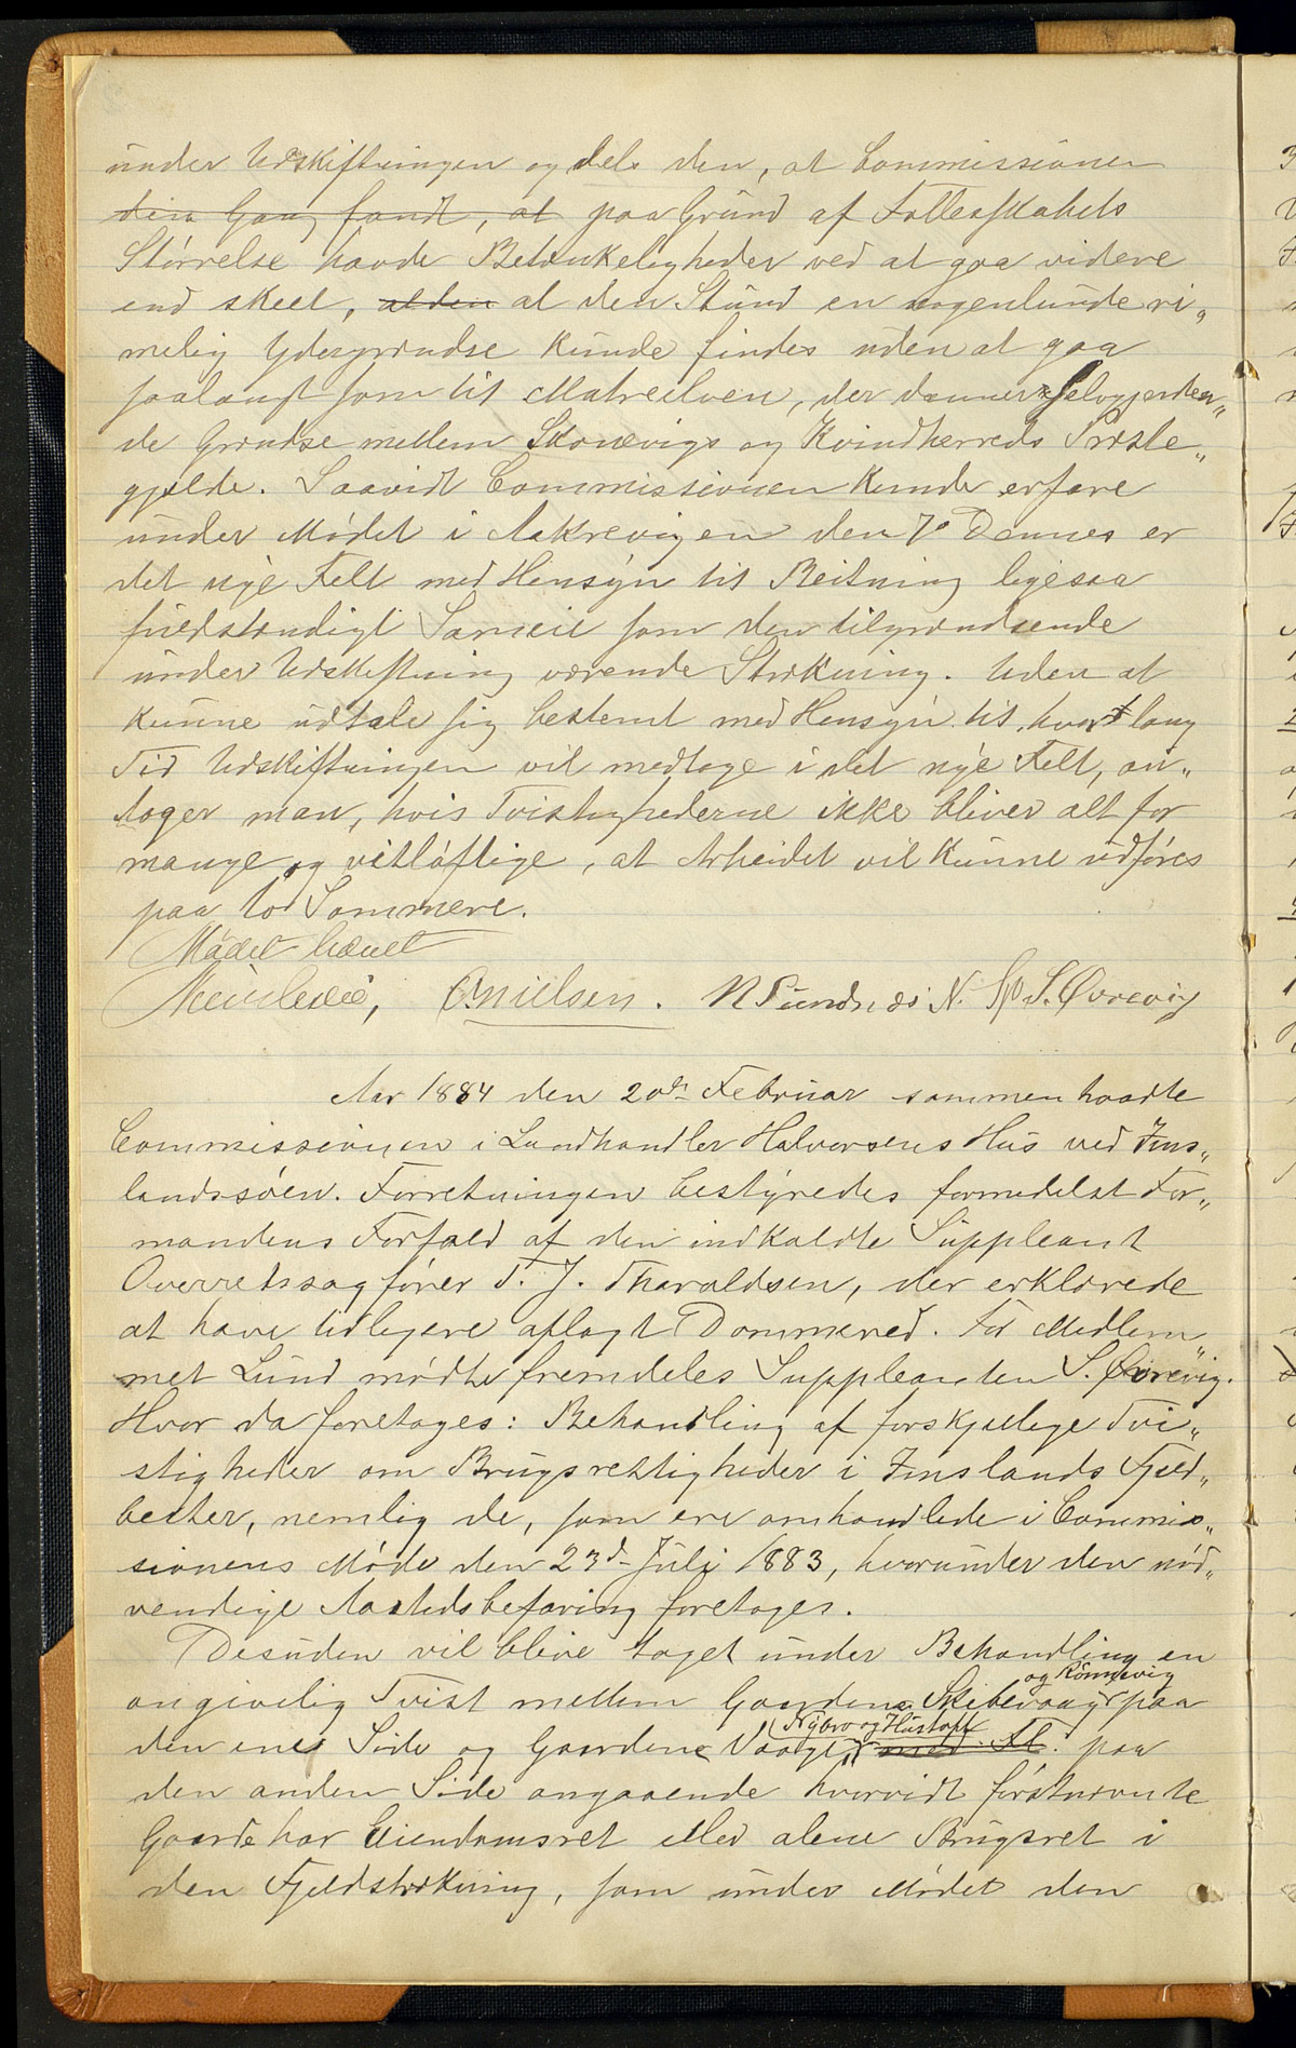 under Udskiftningen og dels den, at Commissionen
den Gang fandt, at paa Grund af Fællesskabets
Størrelse havde Betænkeligheder ved at gaa videre
end skeet, al den al den Stund en nogenlunde ri„
melig Ydergrændse kunde findes uden at gaa
saalangt som til Matreelven, der danner selvgjørden„
de Grændse mellem Skonevigs og Kvindherreds Præste„
gjelde. Saavidt Commissionen kunde erfare
under Mødet i Aakrevigen den 7de Dennes er
det nye Felt med Hensyn til Beitning ligesaa
fuldstændigt Sameie som den tilgrændsende
under Udskiftning værende Strækning. Uden at
kunne udtale sig bestemt med Hensyn til, hvor lang
Tid Udskiftningen vil medtage i det nye Felt, an„
tager man, hvis Tvistighederne ikke bliver alt for
mange og vitløftige, at Arbeidet vil kunne udføres
paa to Sommere.
Mødet hævet
O. Nielsen. N Sundnæs N. S. Øvrevig
Aar 1884 den 20de Februar sammenhaadte
Commissionen i Landhandler Halvorsens Hus ved Jms„
landssøen. Forretningen bestyredes formedelst For„
mandens Forfald af den indkaldte Suppleant
Overretssagfører T. J. Tharaldsen, der erklærede
at have tidligere aflagt Dommered. For Medlem„
met Lund mødte fremdeles Suppleanten S. Øvrevig.
Hvor da foretages: Behandling af forskjellige Tvi„
stigheder om Brugsrettigheder i Jmslands Fjeld„
beiter, nemlig de, som ere omhandlede i Commis„
sionens Møde den 23d Juli 1883, hvorunder den nød„
vendige Aastedsbefaring foretages.
Desuden vil blive taget under Behandling en
og Rönnevig
angivelig Tvist mellem Gaardene Skibevaag paa
Nybro og Hustoft
den ene Side og Gaardene Vaage med Fl. paa
den anden Side angaaende hvorvidt førstnævnte
Gaarde har Eiendomsret eller alene Brugsret i
den Fjeldstrækning, som under Mødet den